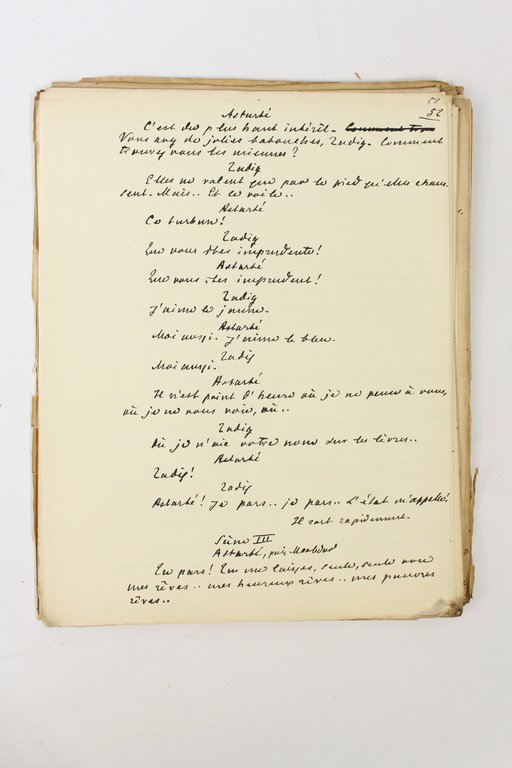 51
52
Astarté
C'est du plus haut intérêt. Comment
Vous avez de jolies babouches, Zadig. Comment
trouvez vous les miennes ?
Zadig
Elles ne valent que par le pied qu'elles chaus-
sent. Mais.. Et ce voile..
Astarté
Ce turban !
Zadig
Que vous êtes imprudente !
Astarté
Que vous êtes imprudent !
Zadig
J'aime le jaune.
Astarté
Moi aussi. J'aime le bleu.
Zadig
Moi aussi.
Astarté
Il n'est point d'heure où je ne pense à vous,
où je ne vous voie, où..
Zadig
Où je n'aie votre nom sur les lèvres..
Astarté
Zadig !
Zadig
Astarté ! Je pars.. je pars.. L'état m'appelle.
Il sort rapidement.
Scène III
Astarté, puis
Tu pars ! Tu me laisses, seule, seule avec
mes rêves.. mes heureux rêves.. mes pauvres
rêves..